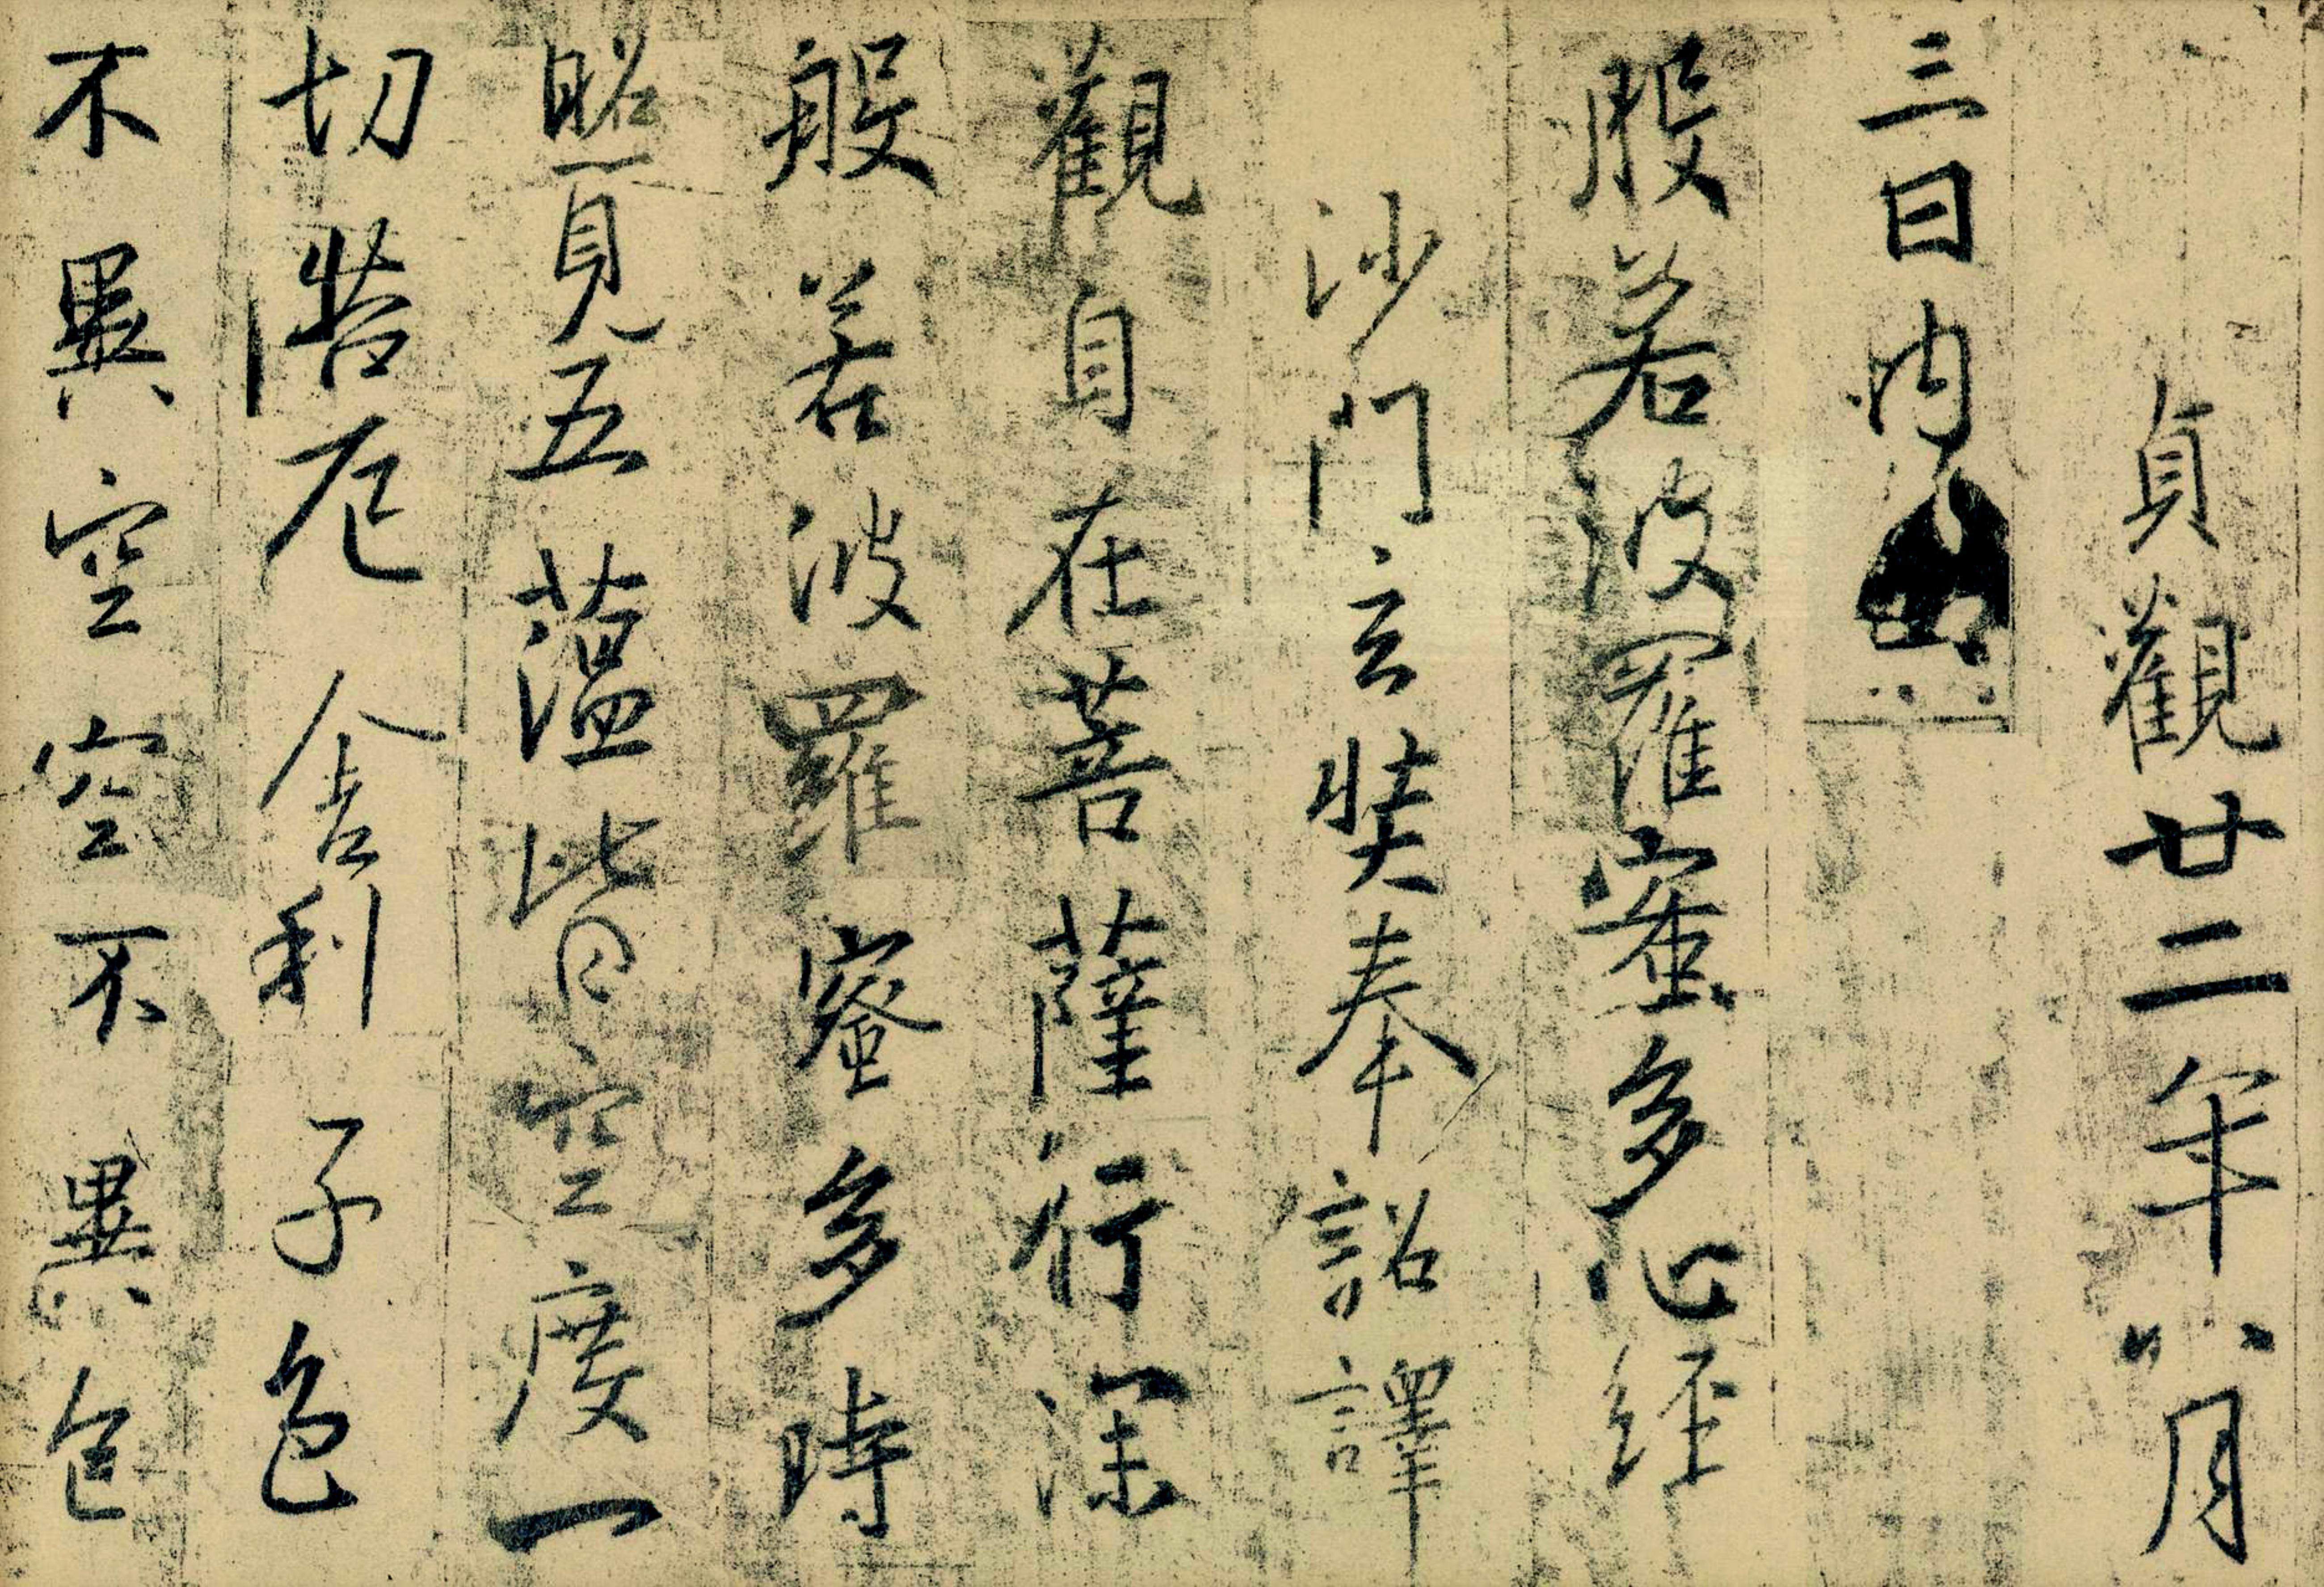 貞觀廿二年八月
三日內
般若波羅蜜多心經
沙門玄奘奉詔譯
觀自在菩薩行深
般若波羅蜜多時
照見五薀皆空度一
切苦厄舍利子色
不異空空不異色